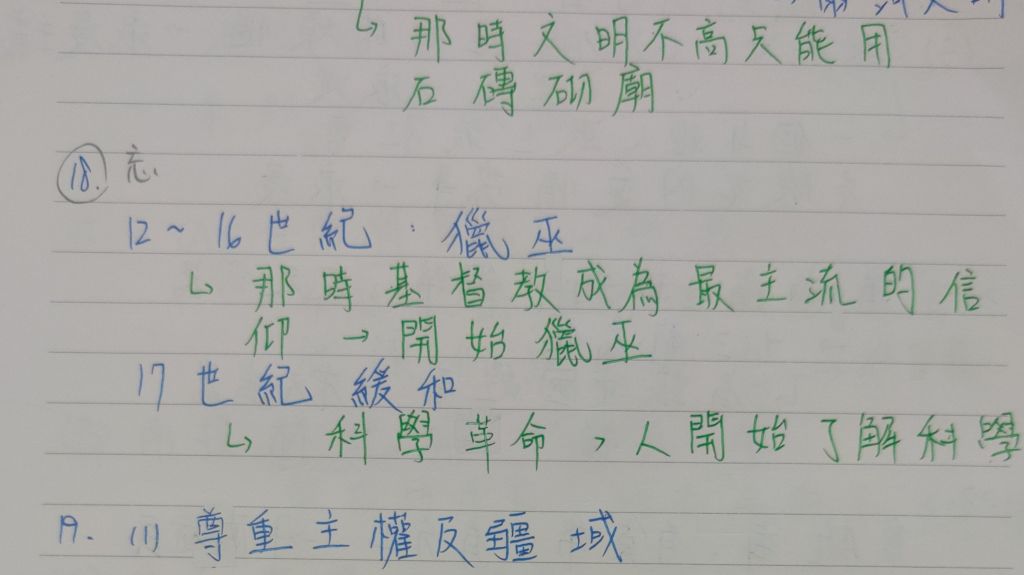 那時文明不高只能用
石磚砌廟
18. 忘
12~16世紀:獵巫
↳ 那時基督教成為最主流的信
仰→開始獵巫
17世紀緩和
↳ 科學革命,人開始了解科學
19. (1) 尊重主權及疆域